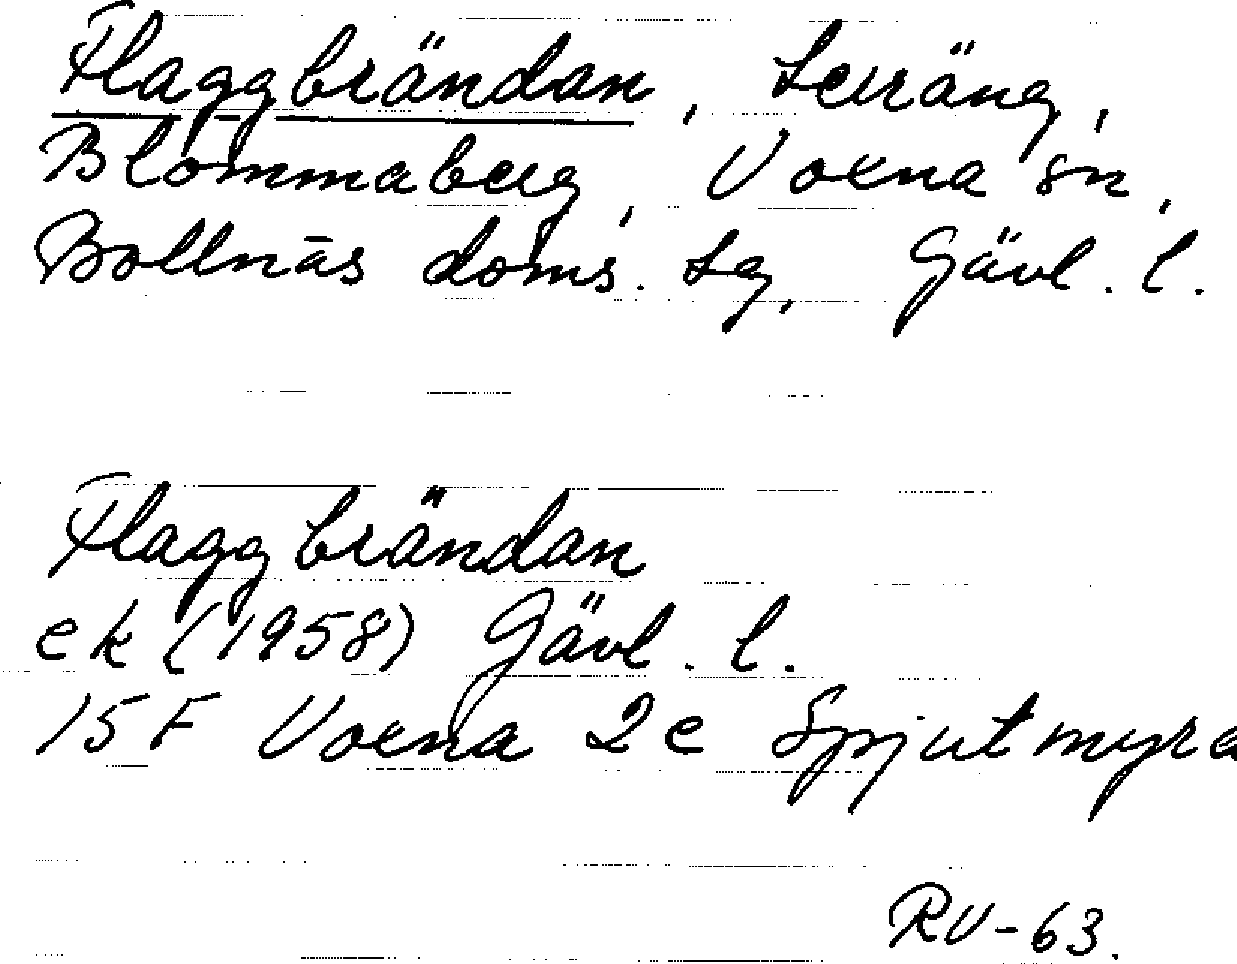 Flaggbrändan, terräng,
Blommaberg, Voxna sn,
Bollnäs doms. tg, Gävl. l.
Flaggbrändan
ek (1958) Gävl. l.
15 F Voxna 2 e Spjutmyra
RV-63.